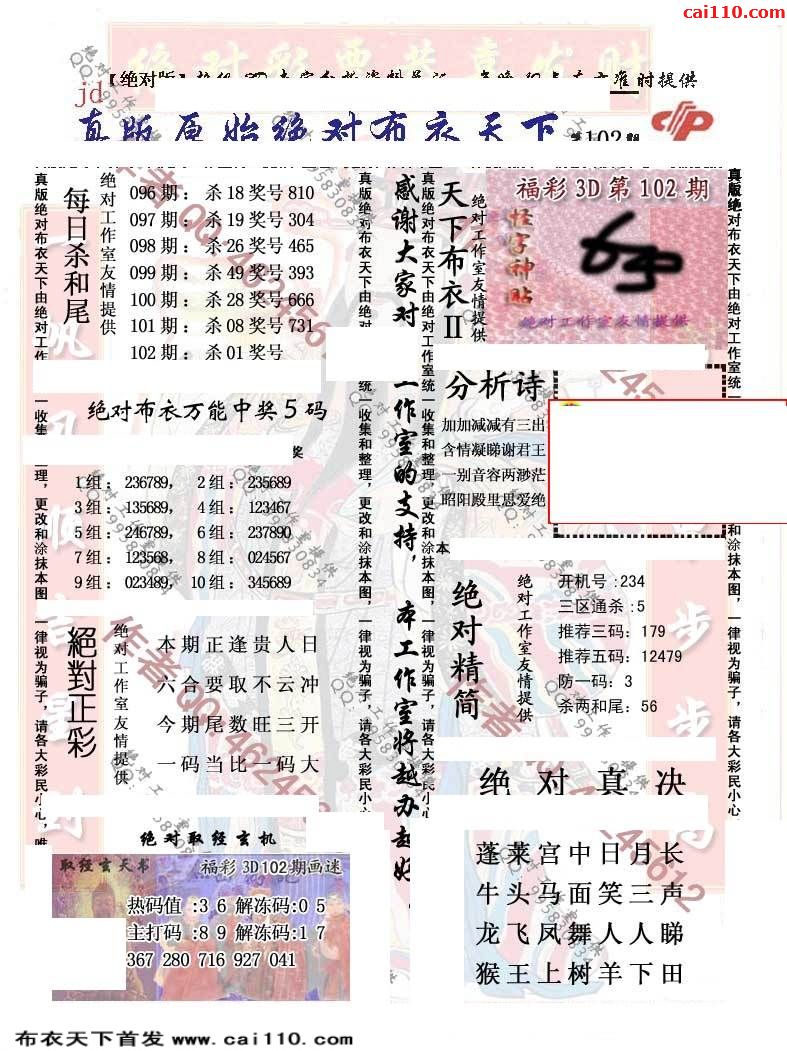 cai110.com
绝对彩票恭喜发财
【绝对版】
准时提供
jd
真版原始绝对布衣天下
第102期
每日杀和尾
绝对工作室友情提供
096期：杀18奖号810
097期：杀19奖号304
098期：杀26奖号465
099期：杀49奖号393
100期：杀28奖号666
101期：杀08奖号731
102期：杀01奖号
真版绝对布衣天下由绝对工作
感谢大家对
一作室的支持，
本工作室将越办越好
天下布衣II
绝对工作室友情提供
福彩3D第102期
怪字神贴
绝对工作室友情提供
真版绝对布衣天下由绝对工作室统一收集和整理，更改和涂抹本图，一律视为骗子，请各大彩民小心
绝对布衣万能中奖5码
奖
1组：236789， 2组：235689
3组：135689， 4组：123467
5组：246789， 6组：237890
7组：123568， 8组：024567
9组：023489， 10组：345689
分析诗
加加减减有三出
含情凝睇谢君王
一别音容两渺茫
昭阳殿里恩爱绝
本
绝对精简
绝对工作室友情提供
开机号:234
三区通杀:5
推荐三码：179
推荐五码：12479
防一码：3
杀两和尾：56
絕對正彩
绝对工作室友情提供
本期正逢贵人日
六合要取不云冲
今期尾数旺三开
一码当比一码大
绝对真决
蓬莱宫中日月长
牛头马面笑三声
龙飞凤舞人人睇
猴王上树羊下田
绝对取经玄机
取经玄天书
福彩3D102期画迷
热码值:36解冻码:05
主打码:89解冻码:17
367 280 716 927 041
布衣天下首发 www.cai110.com